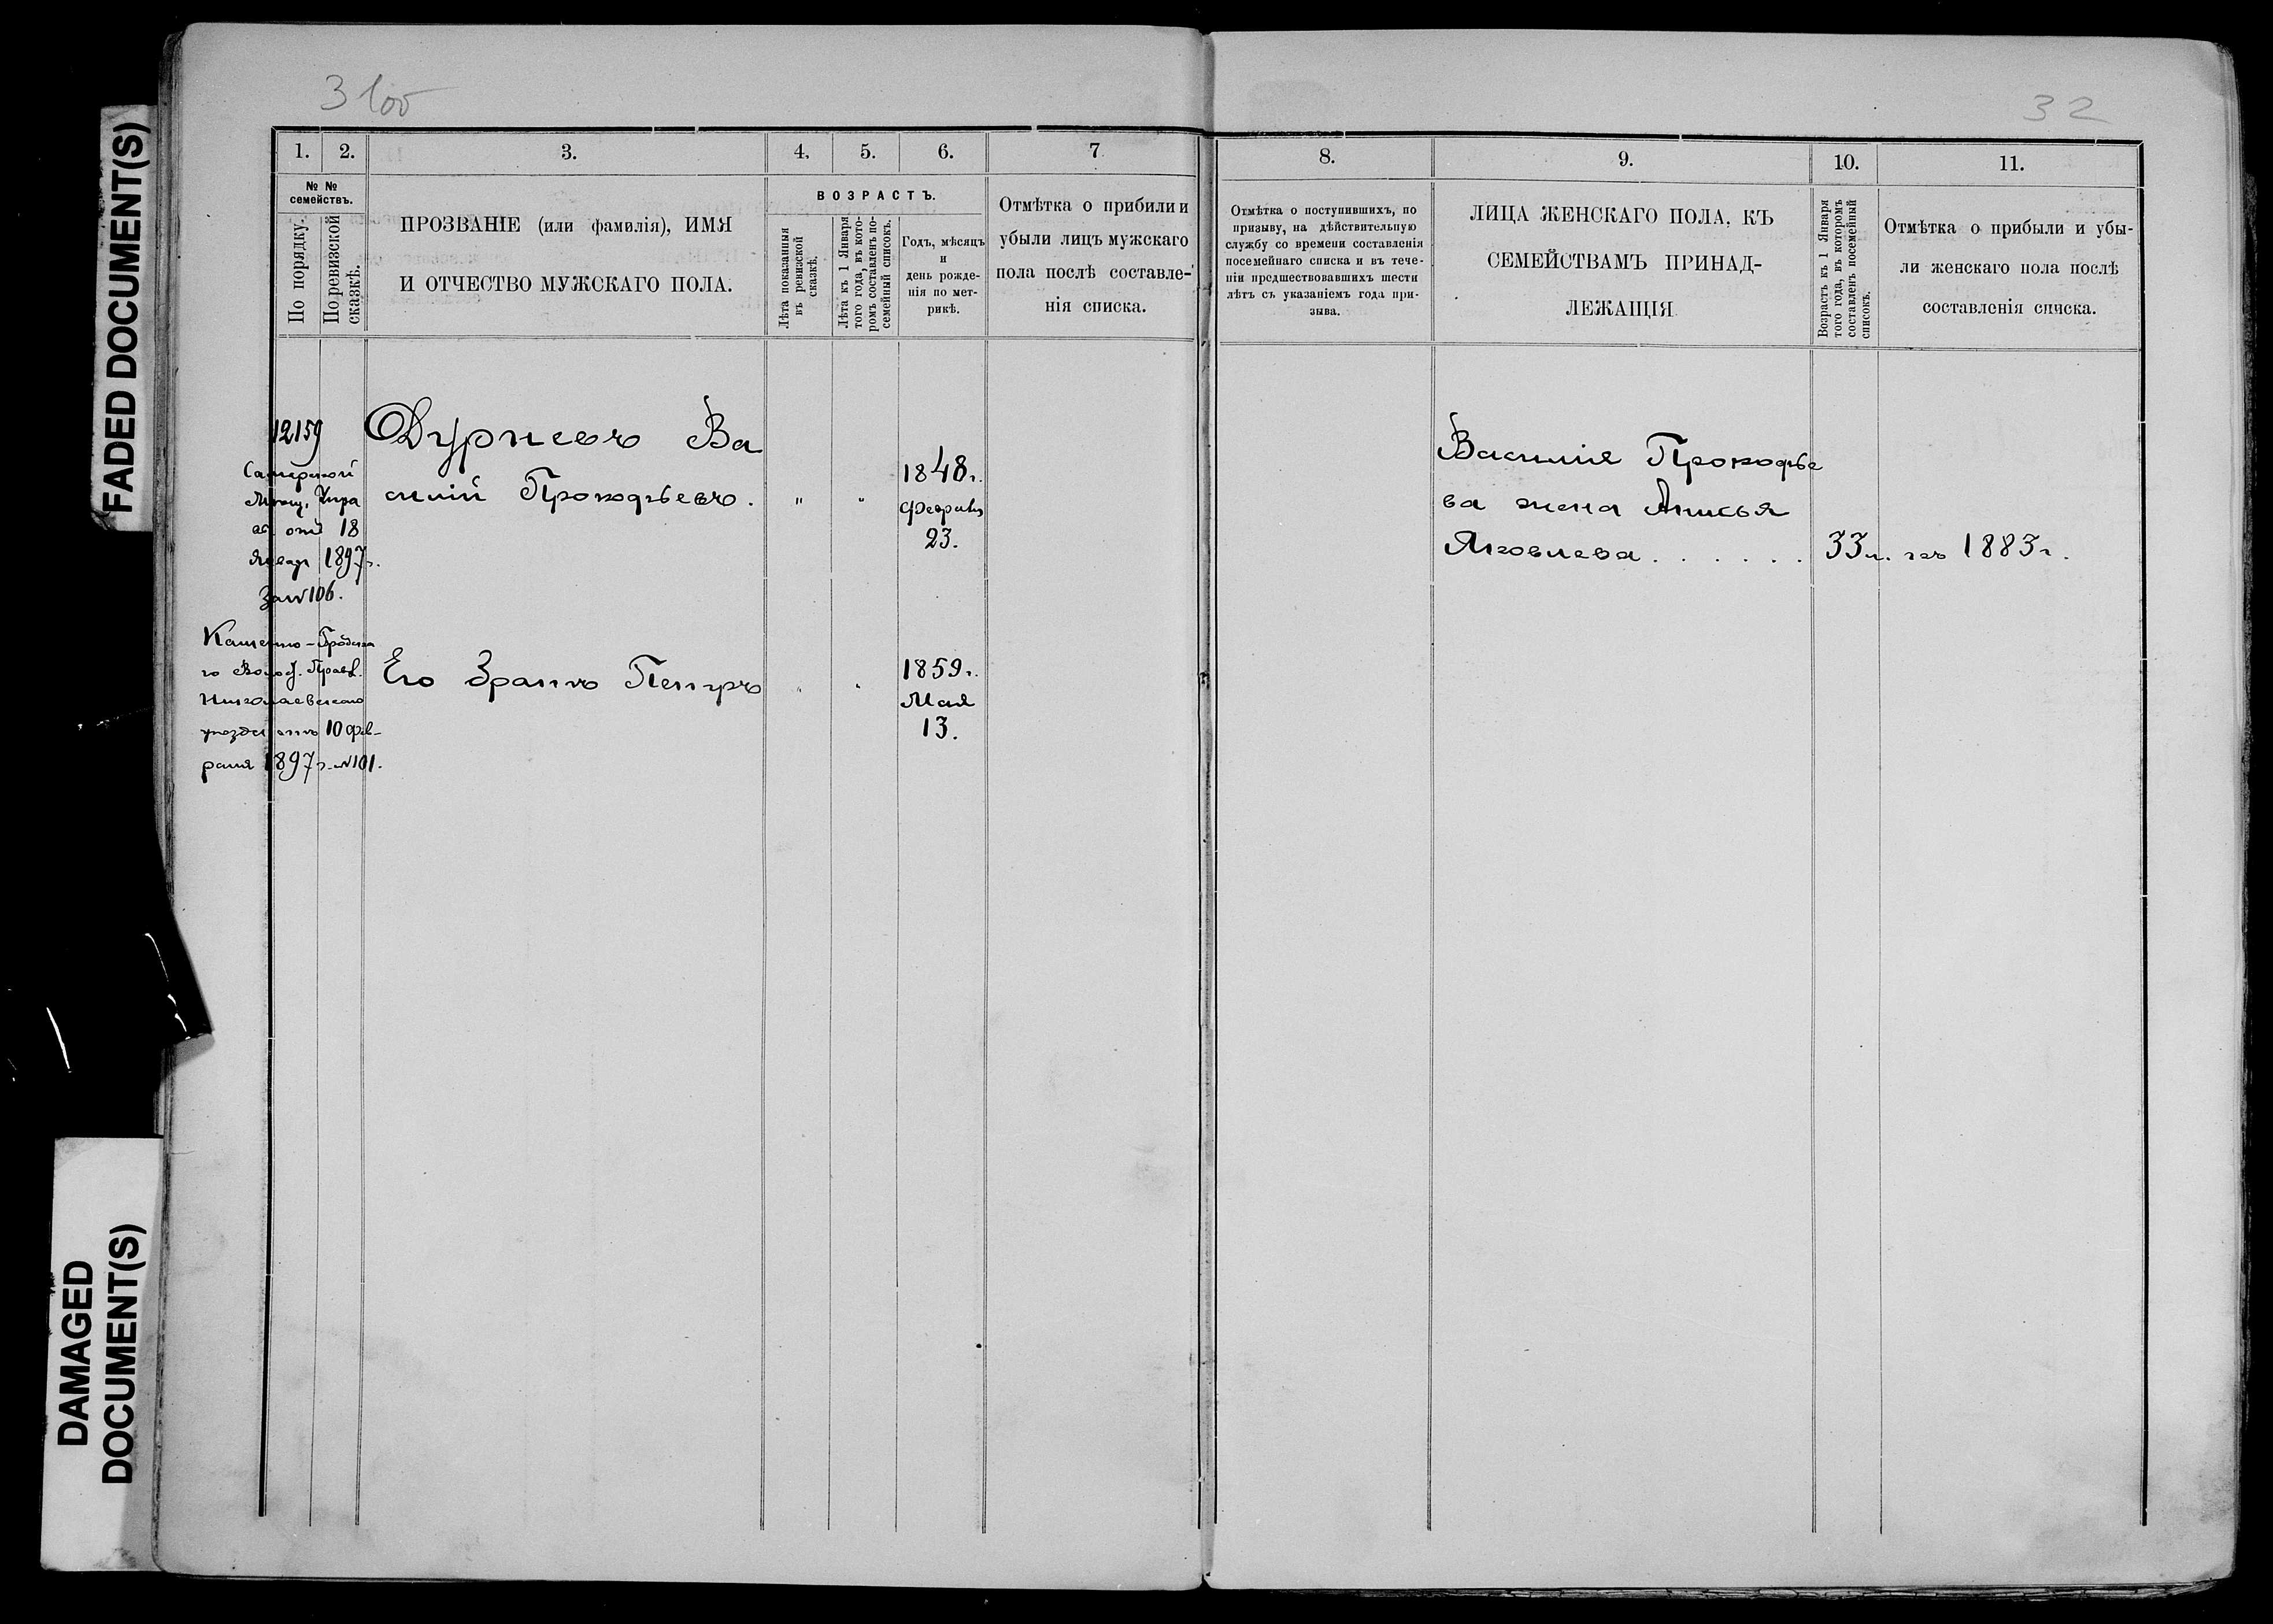 FADED DOCUMENT(S)
DAMAGED
DOCUMENT(S)
3 100
32
1.
2.
3.
4.
5.
6.
7
8.
9.
10.
11.
№ №
семействъ.
По порядку.
По ревизской
сказкѣ.
ПРОЗВАНІЕ (или фамилія), ИМЯ
И ОТЧЕСТВО МУЖСКАГО ПОЛА.
ВОЗРАСТЪ.
Лѣта показанныя
въ ревизской
сказкѣ.
Лѣта къ 1 Января
того года, въ кото-
ромъ составленъ по-
семейный списокъ.
Годъ, мѣсяцъ
и
день рожде-
нія по мет-
рикѣ.
Отмѣтка о прибили и
убыли лицъ мужскаго
пола послѣ составле-
нія списка.
Отмѣтка о поступившихъ, по
призыву, на дѣйствительную
службу со времени составленія
посемейнаго списка и въ тече-
ніи предшествовавшихъ шести
лѣтъ съ указаніемъ года при-
зыва.
ЛИЦА ЖЕНСКАГО ПОЛА, КЪ
СЕМЕЙСТВАМЪ ПРИНАД-
ЛЕЖАЩІЯ
Возрастъ къ 1 Января
того года, въ которомъ
составленъ посемейный
списокъ.
Отмѣтка о прибыли и убы-
ли женскаго пола послѣ
составленія списка.
12159
Самарской
Мѣщ. Упра
вы отъ 18
Январ 1897 г.
за № 106.
Каменно-Бродска
го Волос. Правл.
Николаевскаго
уѣзда отъ 10 фев-
раля 1897 г. № 101.
Ва
силій Прокофьевъ.
" "
1848 г.
Февраля
23.
Его братъ Петръ
" "
1859 г.
Мая
13.
Василія Прокофье
ва жена Анисья
Яковлева . . . . . .
33 л. къ 1883 г.